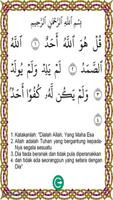 بِسْمِ اللَّهِ الرَّحْمَٰنِ الرَّحِيمِ
قُلْ هُوَ اللَّهُ أَحَدٌ ١ اللَّهُ
الصَّمَدُ ٢ لَمْ يَلِدْ وَلَمْ يُولَدْ
٣ وَلَمْ يَكُن لَّهُ كُفُوًا أَحَدٌ
٤
1. Katakanlah: "Dialah Allah, Yang Maha Esa
2. Allah adalah Tuhan yang bergantung kepada-
Nya segala sesuatu
3. Dia tiada beranak dan tidak pula diperanakkan
4. dan tidak ada seorangpun yang setara dengan
Dia"